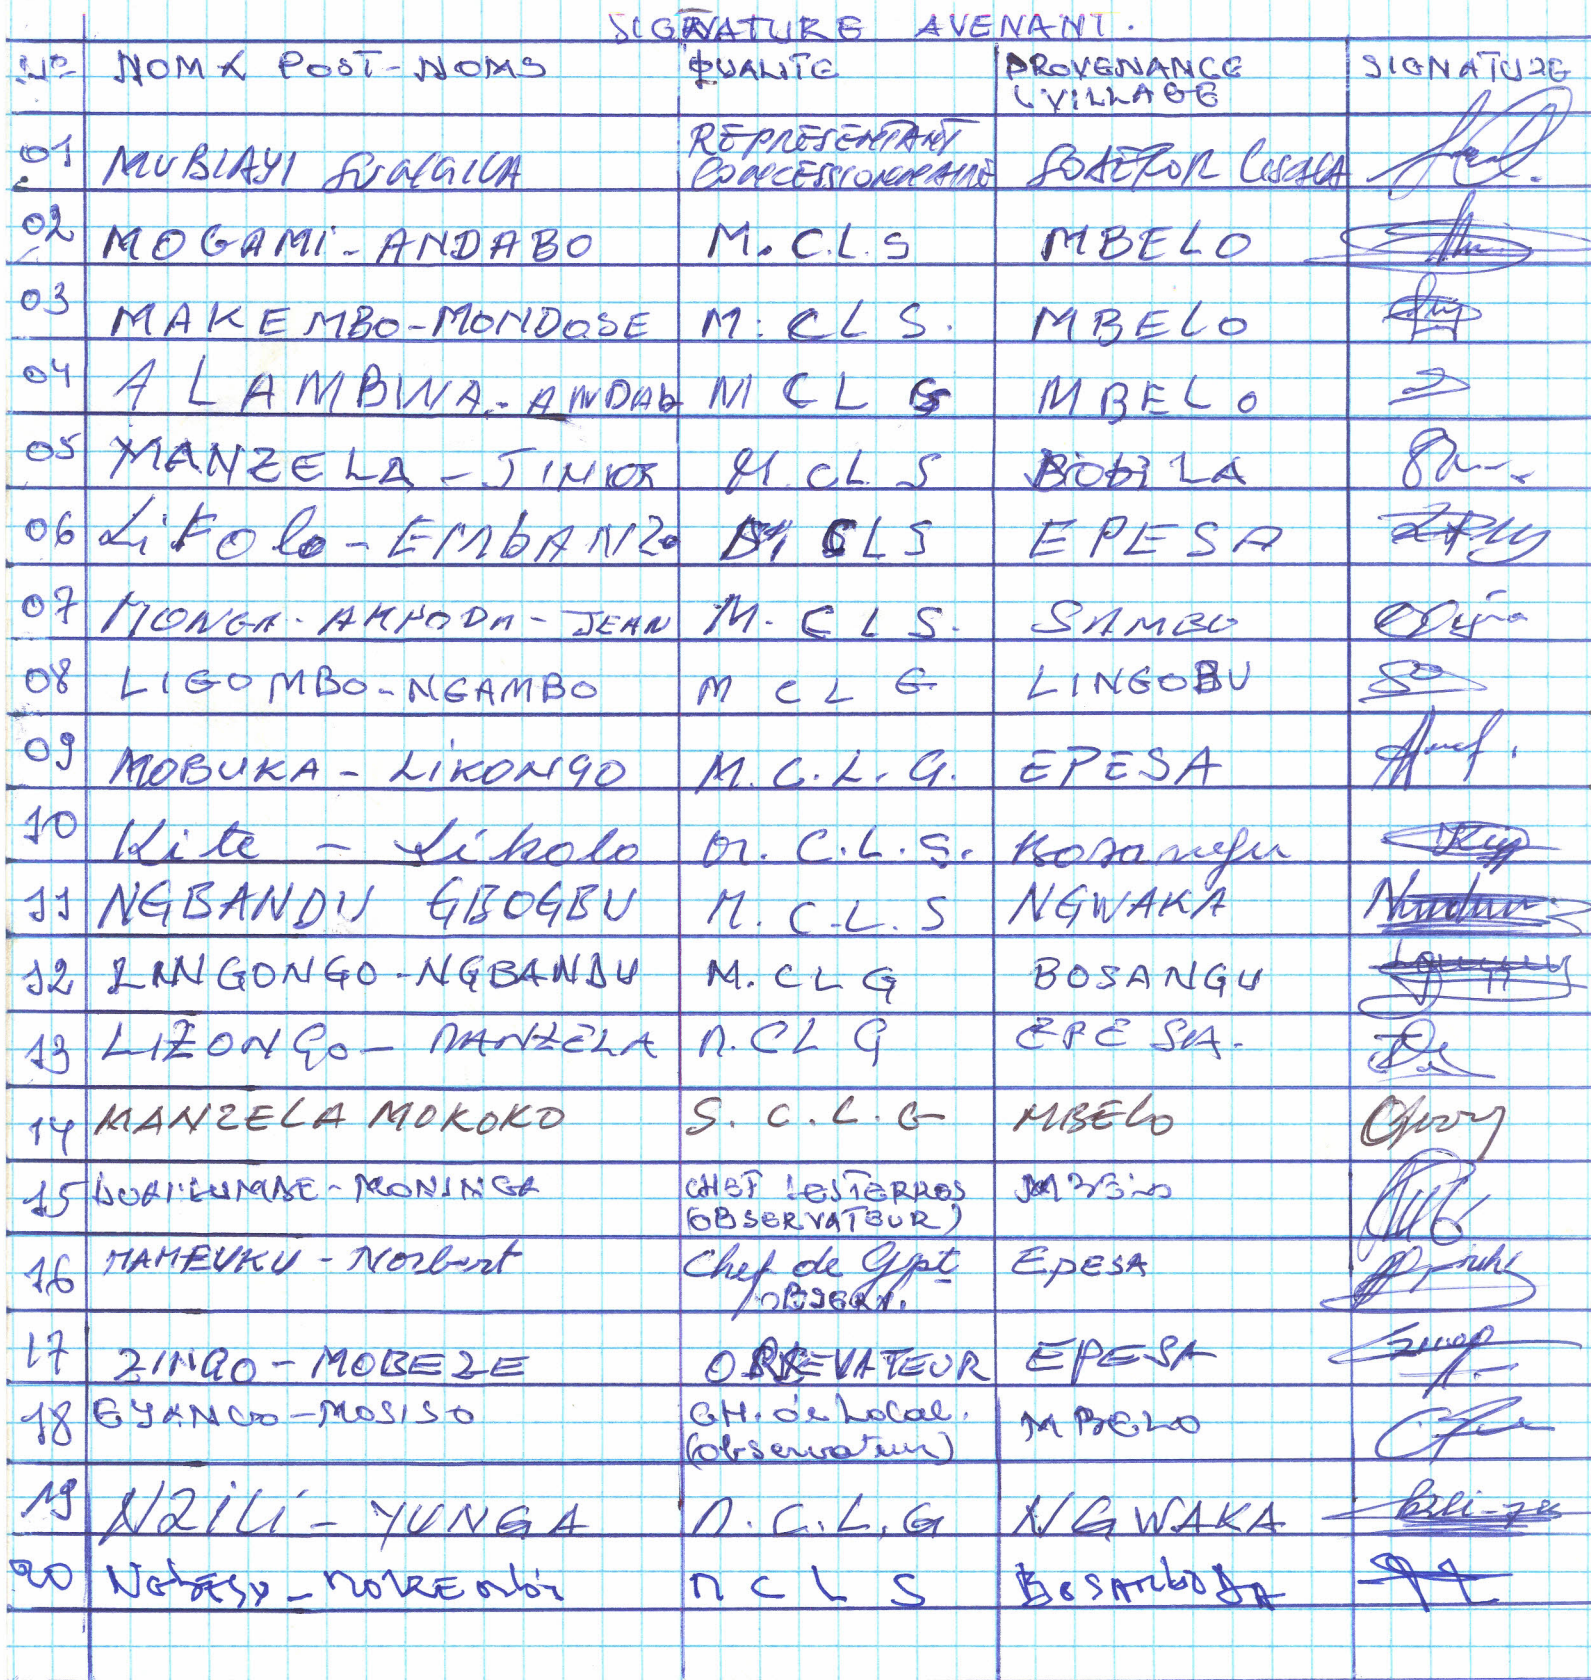 SIGNATURE AVENANT.
N° NOM & POST-NOMS QUALITE PROVENANCE (VILLAGE SIGNATURE
01 MUBIAYI REPRESENTANT CONCESSIONNAIRE
02 MOGAMI - ANDABO M. C.L.S MBELO
03 MAKEMBO - MONDOSE M. C L S. MBELO
04 ALAMBWA - ANDAb M C L G MBELO
05 MANZELA - JINIOR M. CL S BOBILA
06 LiKolo - EMbANZo M CLS EPESA
07 MONGA - - JEAN M. C L S. SAMBO
08 LIGOMBO - NGAMBO M C L G LINGOBU
09 MOBUKA - LIKONGO M. C. L. G. EPESA
10 Kite - Likolo M. C.L.S. Bosangu
11 NGBANDU GBOGBU M. C.L.S NGWAKA
12 LINGONGO - NGBANDU M. CLG BOSANGU
13 LIZONGO - MANZELA M. CL G EPESA.
14 MANZELA MOKOKO S. C. L. G MBELO
15 - MONINGA CHEF DES TERRES (OBSERVATEUR) MBELO
16 MAMEUKU - Norbert Chef de Gpt OBSERV. EPESA
17 ZINGO - MOBEZE OBSEVATEUR EPESA
18 EYANGO - MOSISO CH. de Local. (Observateur) MBELO
19 NZILI - YUNGA M. C.L.G NGWAKA
20 M C L S